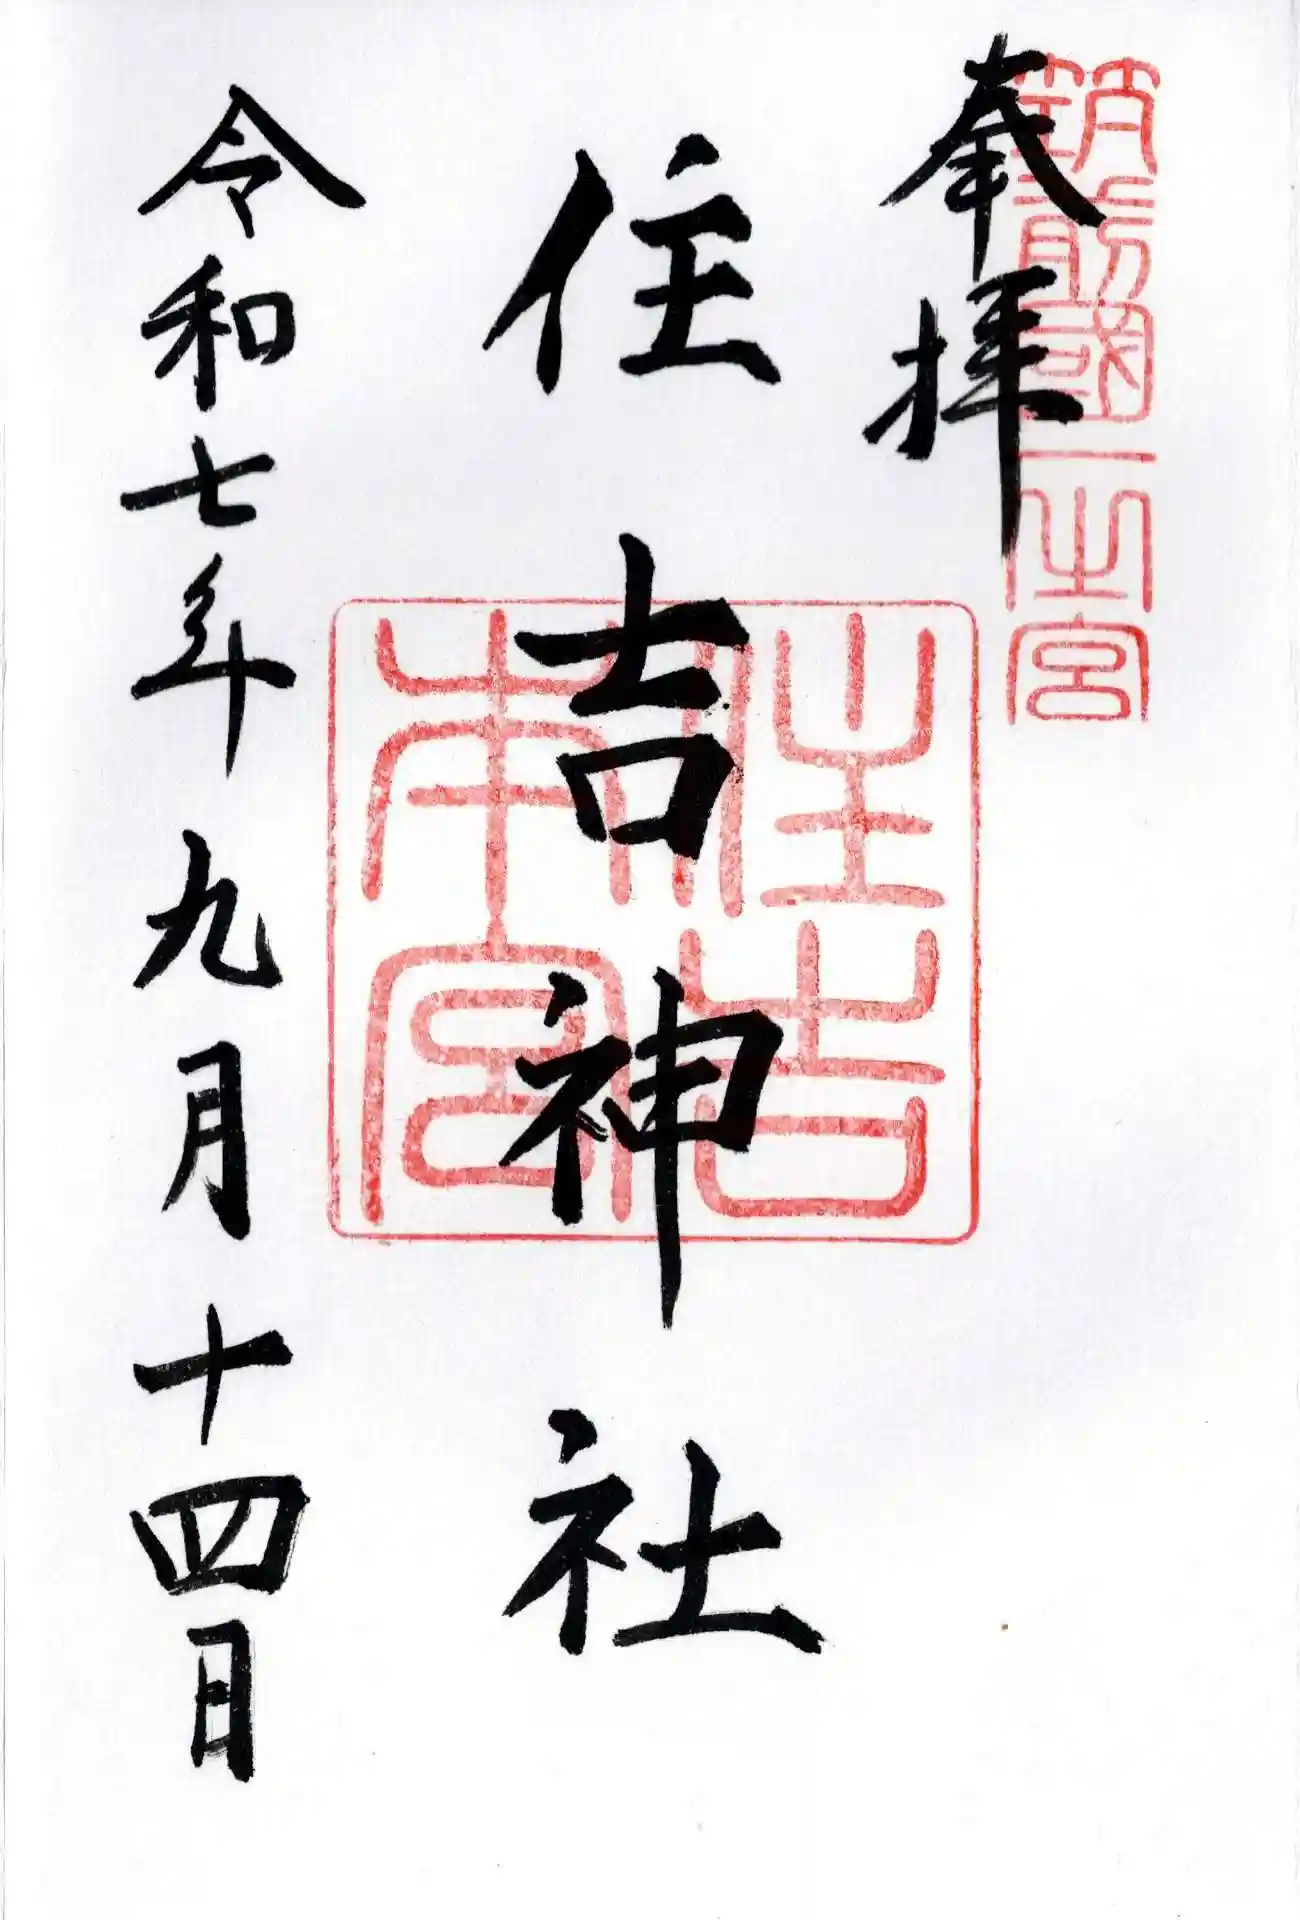 筑前國一之宮
奉拝
住吉神社
住吉
本宮
令和七年九月十四日